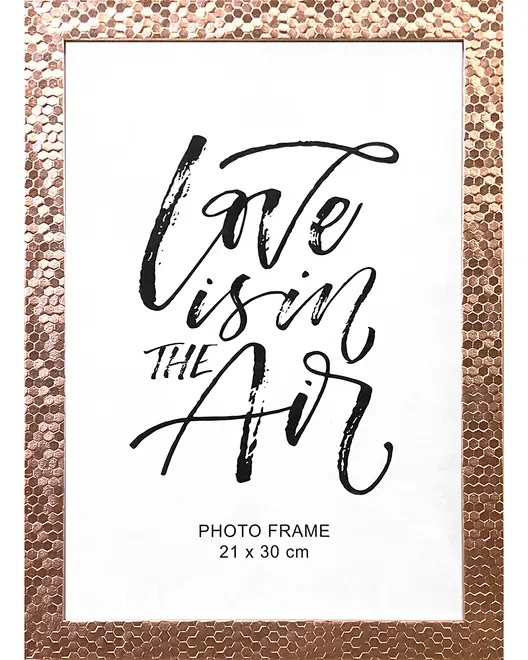 Love
is in
THE
Air
PHOTO FRAME
21 x 30 cm